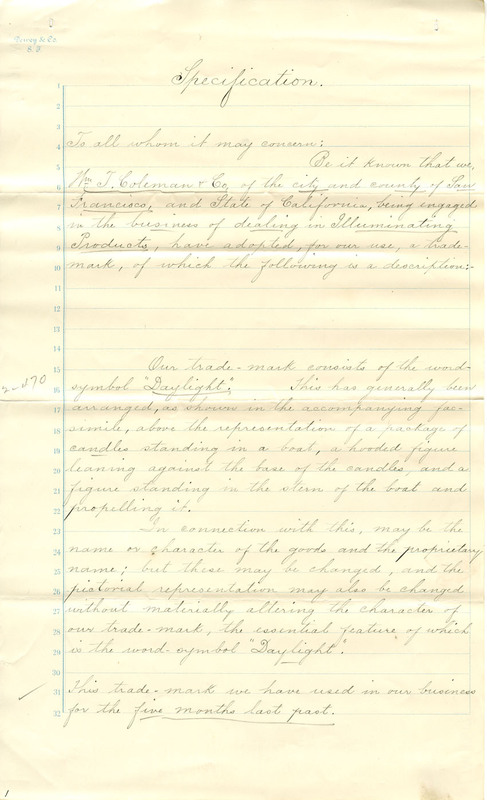 Dewey & Co.
S. F.
Specification.
1
2
3
4 To all whom it may concern:
5 Be it known that we,
6 Wm T. Coleman & Co, of the city and county of San
7 Francisco, and State of California, being engaged
8 in the business of dealing in Illuminating
9 Products, have adopted, for our use, a trade-
10 mark, of which the following is a description:-
11
12
13
14
15 Our trade-mark consists of the word-
2-470
16 symbol "Daylight". This has generally been
17 arranged, as shown in the accompanying fac-
18 simile, above the representation of a package of
19 candles standing in a boat, a hooded figure
20 leaning against the base of the candles, and a
21 figure standing in the stern of the boat and
22 propelling it.
23 In connection with this, may be the
24 name or character of the goods and the proprietary
25 name; but these may be changed, and the
26 pictorial representation may also be changed
27 without materially altering the character of
28 our trade-mark, the essential feature of which
29 is the word-symbol "Daylight".
30
31 This trade-mark we have used in our business
32 for the five months last past.
1